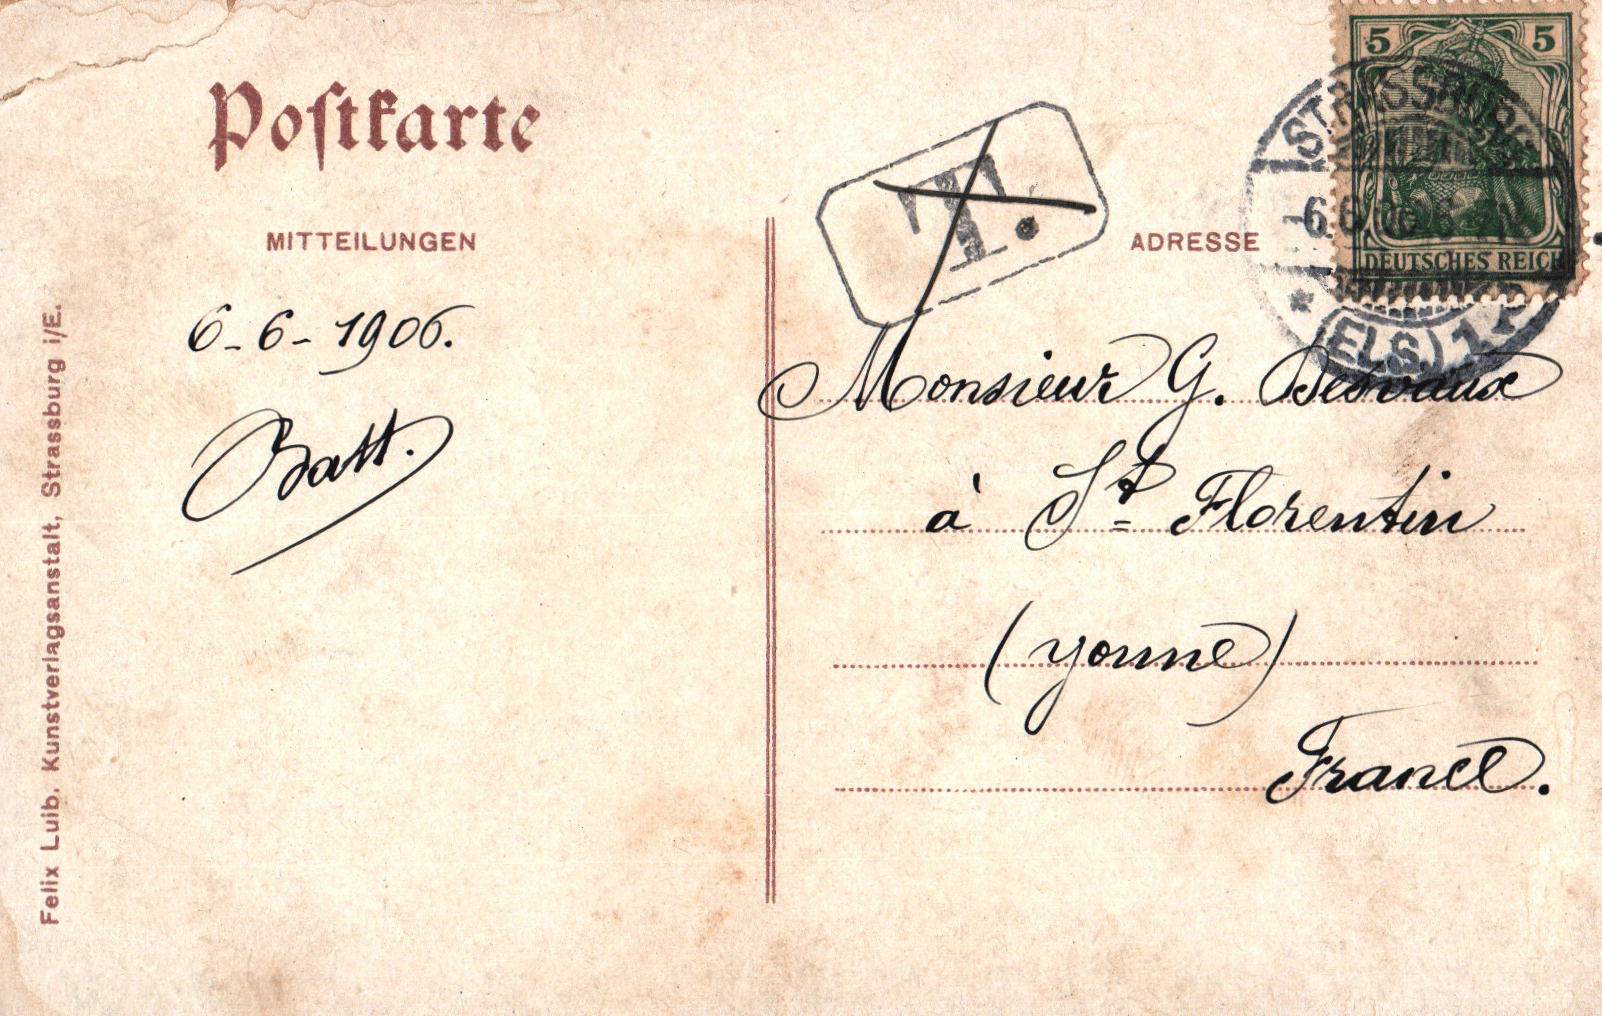 Postkarte
MITTEILUNGEN
ADRESSE
T.
5 5
DEUTSCHES REICH
STRASSBURG
-6.6.06
* (ELS.) 1
6-6-1906.
Batt.
Monsieur G. Desvaux
à St Florentin
(Yonne)
France.
Felix Luib, Kunstverlagsanstalt, Strassburg i/E.